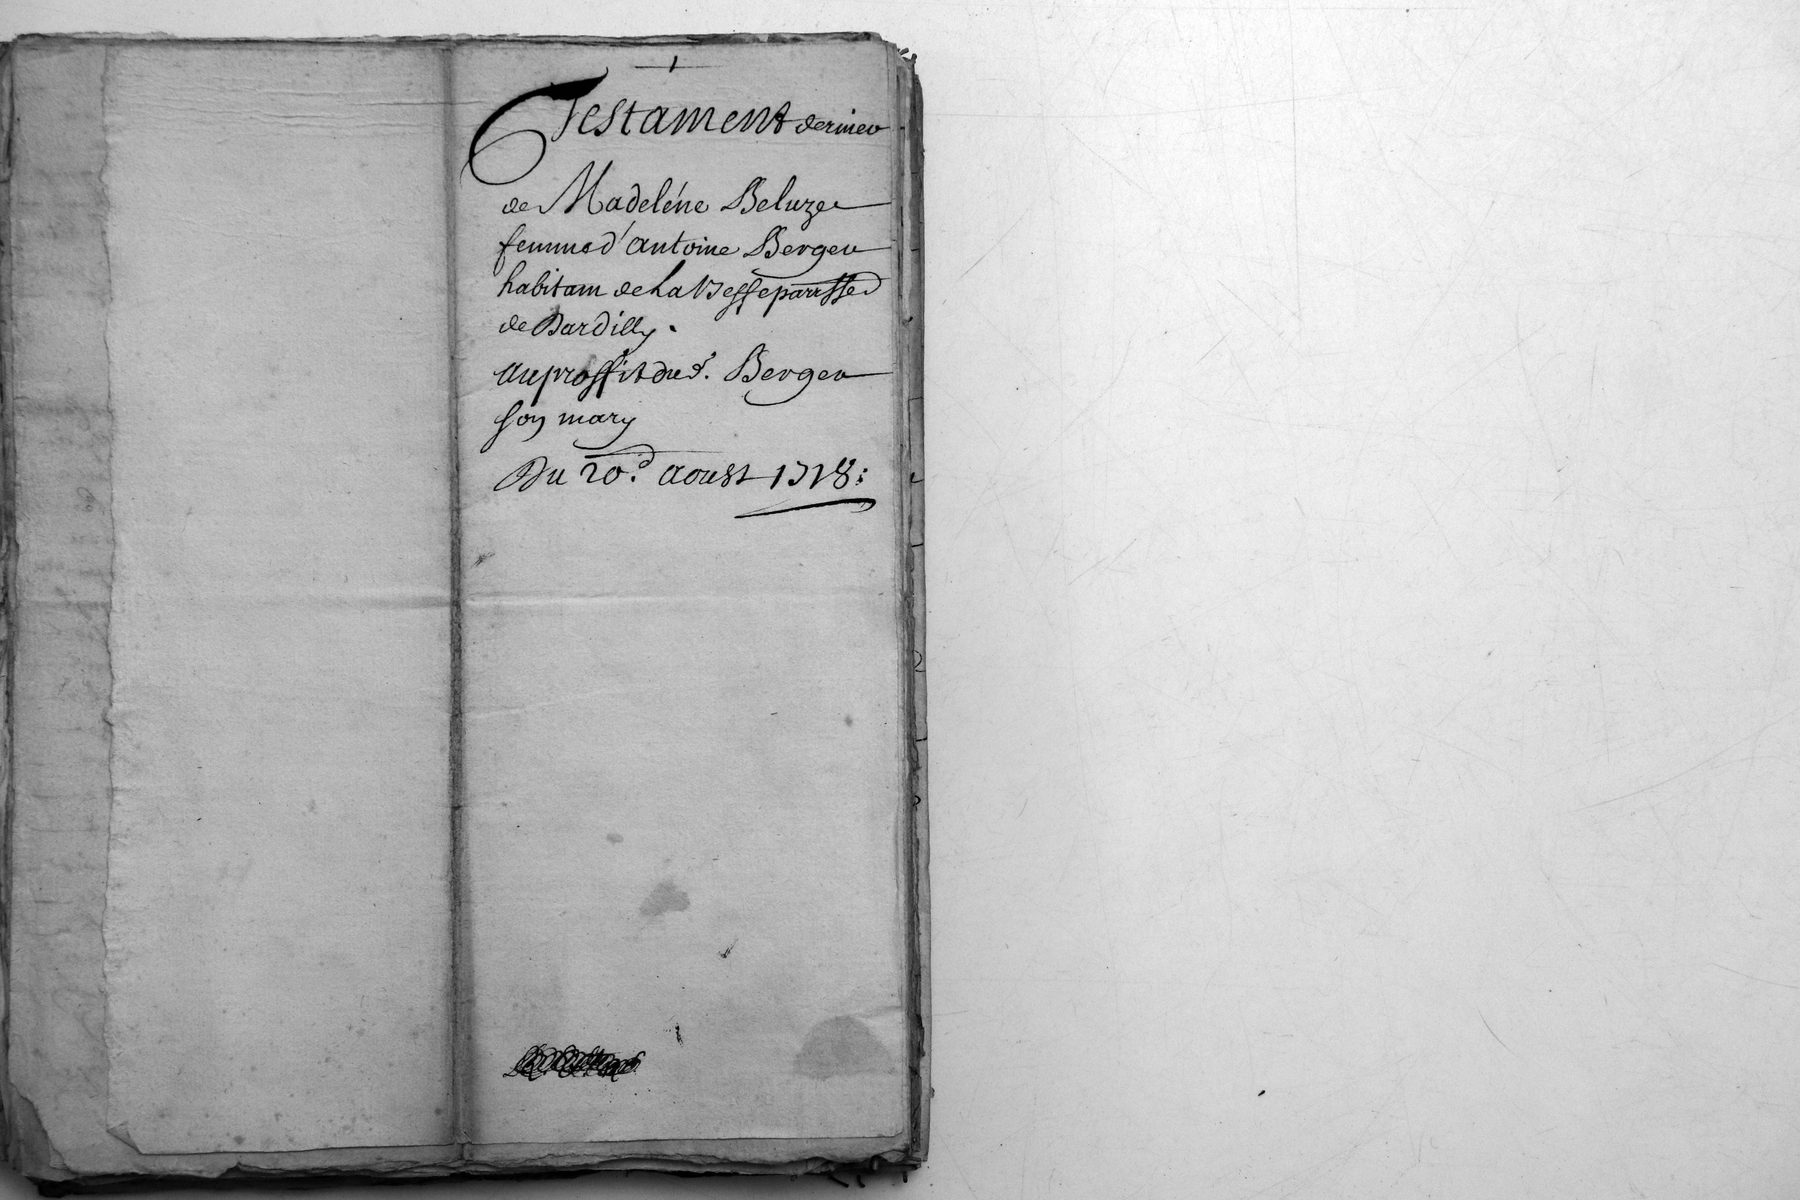 Testament dernier
de Madeléne Beluze
femme d'antoine Berger
habitam de La Besse parrsse
de Dardilly.
au proffit dud. Berger
son mary
Du 20.e aoust 1718: